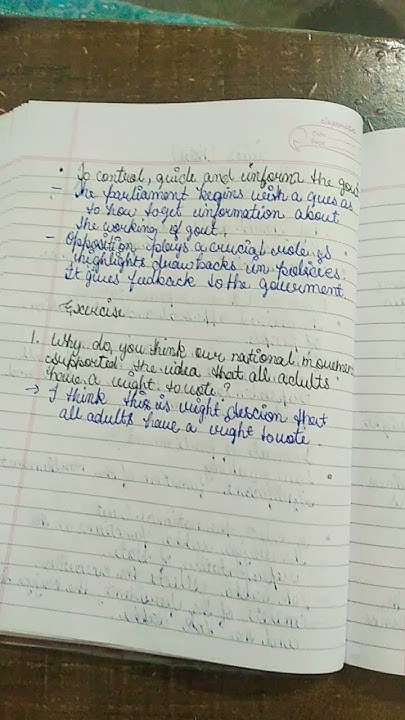 Classmate
Date
Page
• To control, guide and inform the gout
- The parliament begins with a ques as
to how to get information about
the working of gout.
- Opposition plays a crucial role is
highlights drawbacks in policies.
It gives feedback to the goverment.
Exercise
1. Why do you think our national movemen
supported the idea that all adults
have a right to vote?
→ I think this is right descion that
all adults have a right to vote.